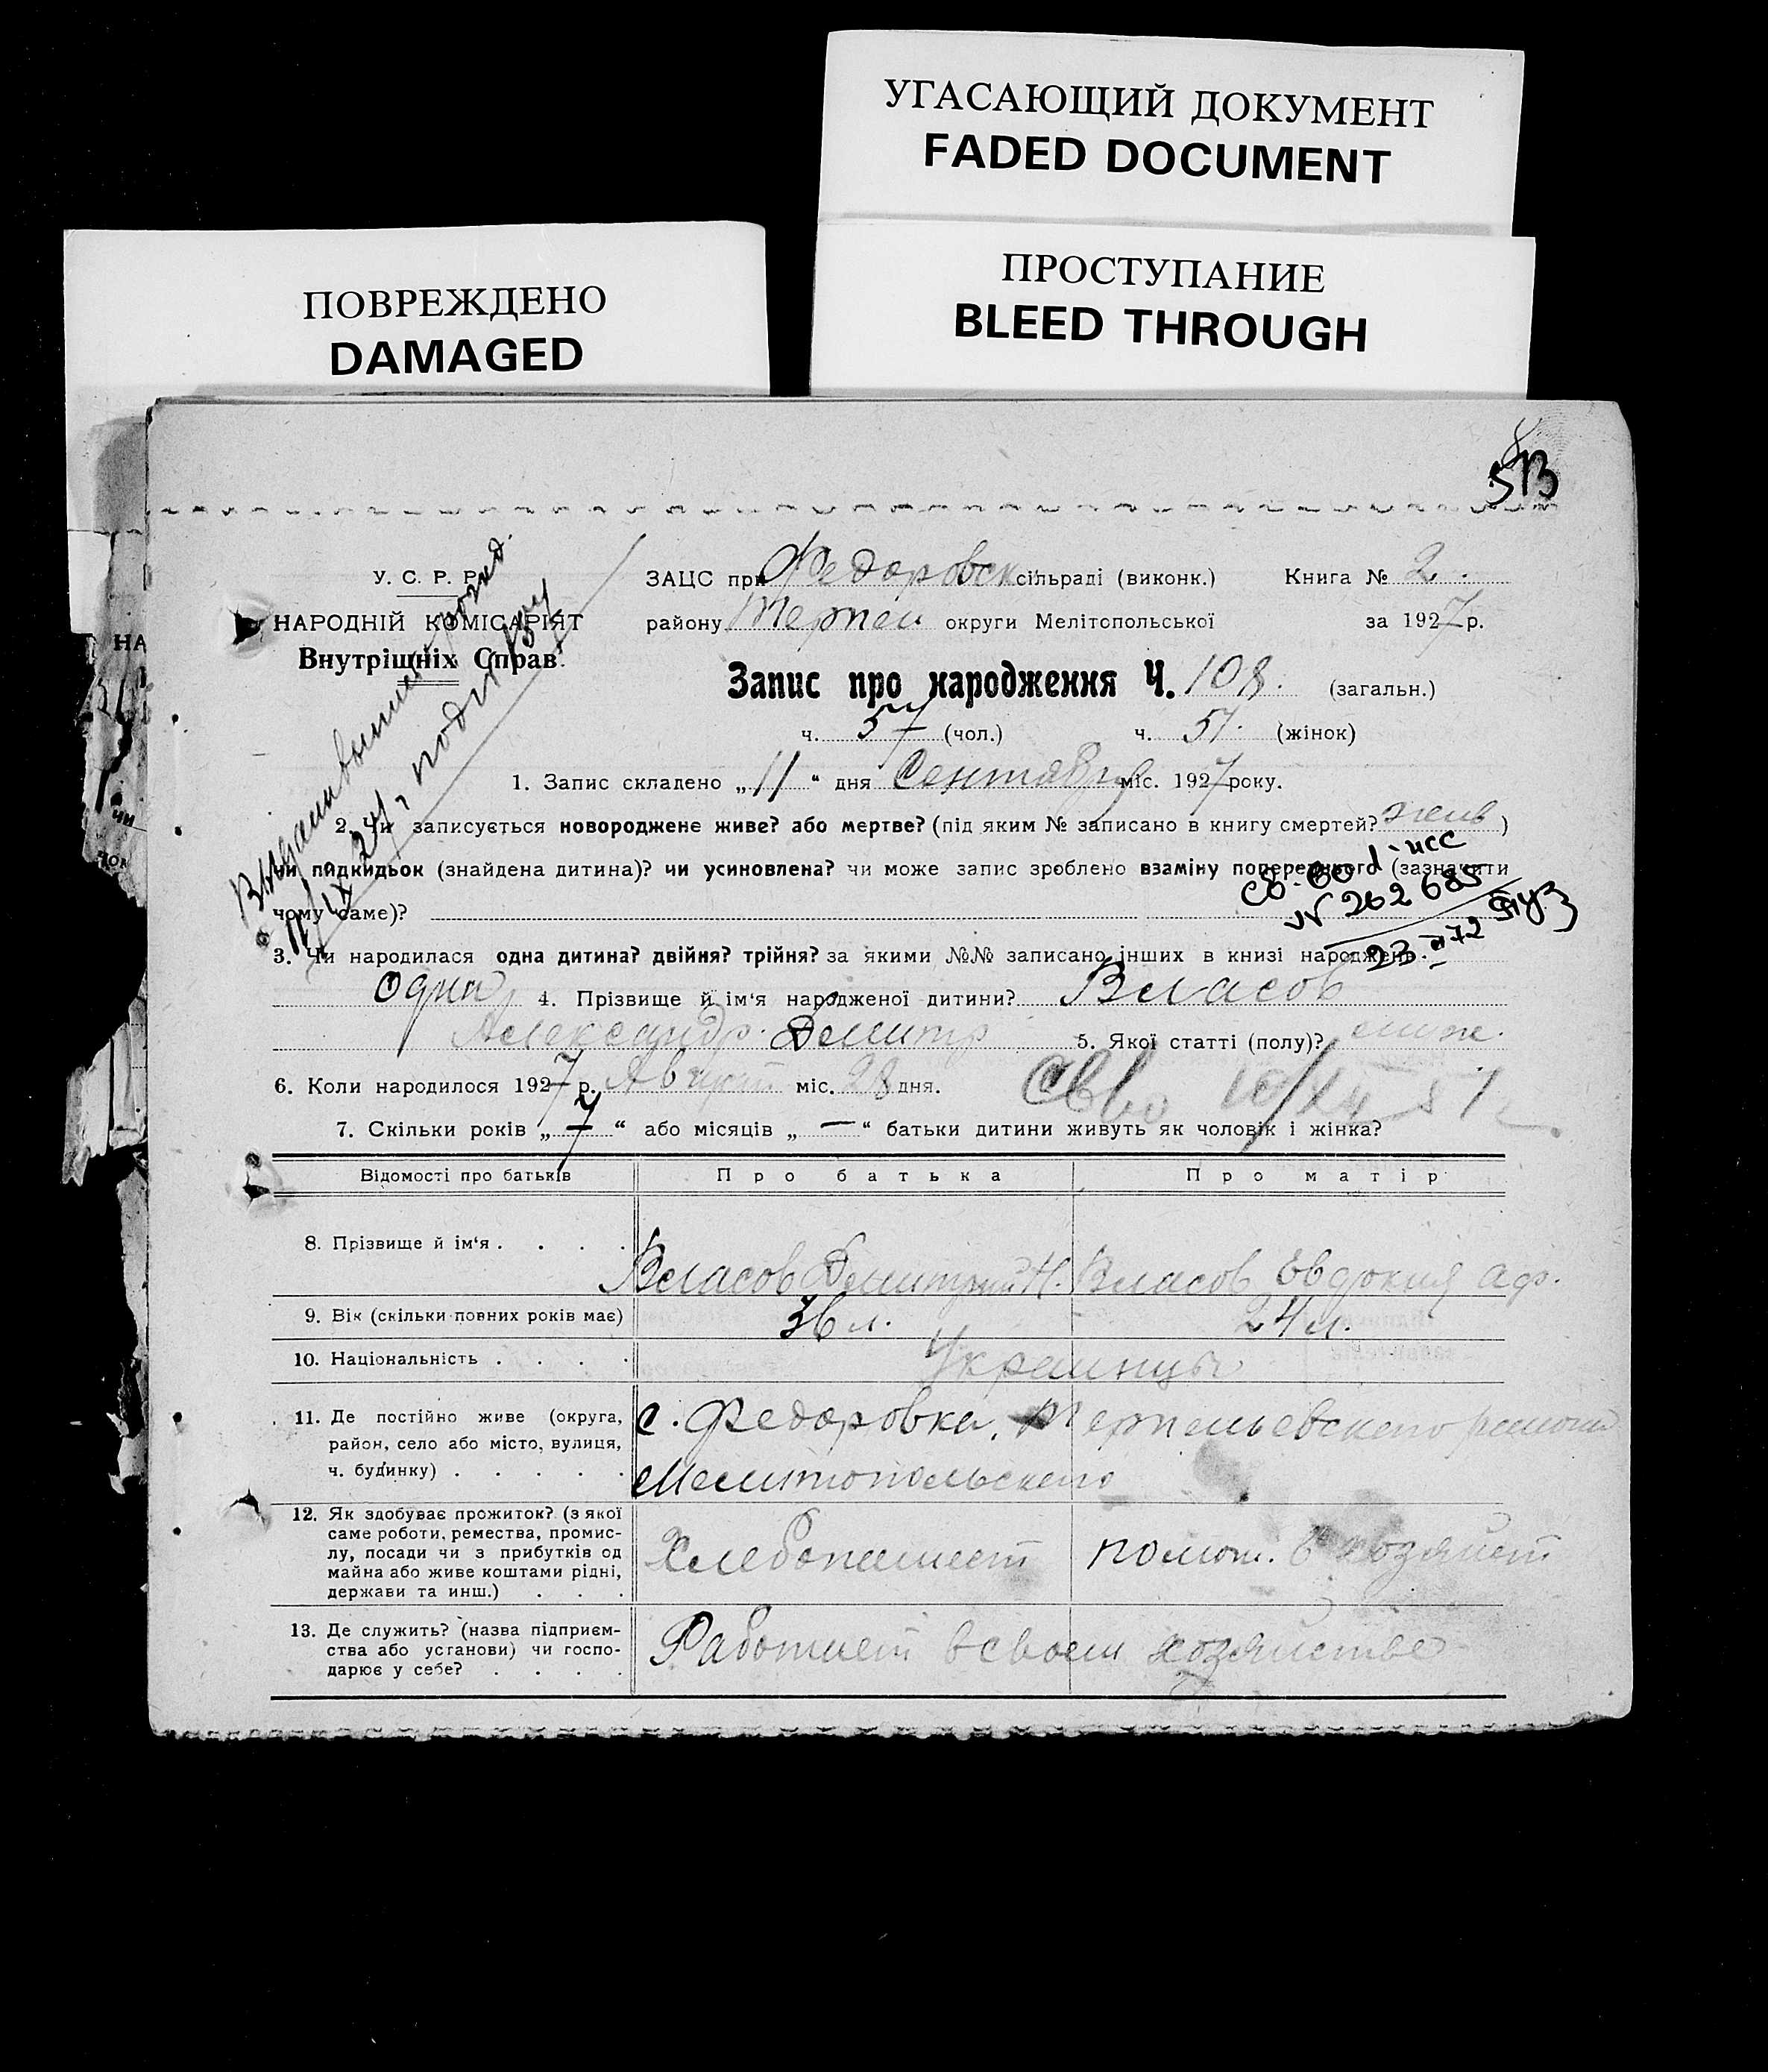 УГАСАЮЩИЙ ДОКУМЕНТ
FADED DOCUMENT
ПРОСТУПАНИЕ
BLEED THROUGH
ПОВРЕЖДЕНО
DAMAGED
У. С. Р. Р.
НАРОДНІЙ КОМІСАРІЯТ
Внутрішніх Справ.
ЗАЦС при Федоровск сільраді (виконк.) Книга № 2.
району Терпен округи Мелітопольської за 1927 р.
Запис про народження Ч. 108. (загальн.)
ч. 57 (чол.) ч. 51. (жінок)
1. Запис складено „11“ дня Сентября міс. 1927 року.
2. Чи записується новороджене живе? або мертве? (під яким № записано в книгу смертей?)
чи підкидьок (знайдена дитина)? чи усиновлена? чи може запис зроблено взаміну попереднього (зазначити
чому саме)?
№ 262685
3. Чи народилася одна дитина? двійня? трійня? за якими №№ записано інших в книзі народжень.
Одна 4. Прізвище й ім'я народженої дитини? Власов
Александр Демитр 5. Якої статті (полу)?
6. Коли народилося 1927 р. Август міс. 28 дня.
7. Скільки років „7“ або місяців „—“ батьки дитини живуть як чоловік і жінка?
Відомості про батьків Про батька Про матір
8. Прізвище й ім'я . . . . Власов Демитрий Н. Власов Евдокия Аф.
9. Вік (скільки повних років має) 36 л. 24 л.
10. Національність . . . . Украинцы
11. Де постійно живе (округа, район, село або місто, вулиця, ч. будинку) . . . . . с. Федоровка, Терпеньевского района
Мелитопольского
12. Як здобуває прожиток? (з якої
саме роботи, ремества, промис-
лу, посади чи з прибутків од
майна або живе коштами рідні,
держави та инш.) . . . Хлебопашест помощ. в хозяйст
13. Де служить? (назва підприєм-
ства або установи) чи госпо-
дарює у себе? . . . . Работает в своем хозяйстве